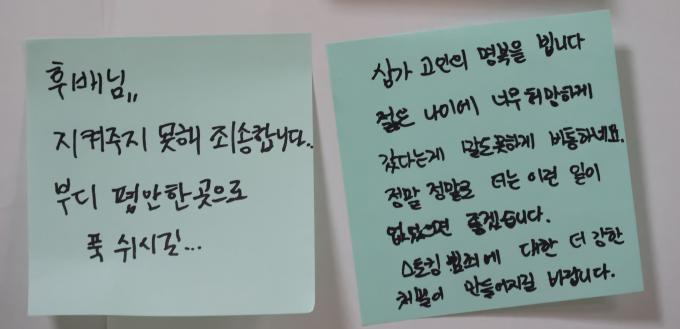 후배님,,
지켜주지 못해 죄송합니다..
부디 평안한 곳으로
푹 쉬시길...
삼가 고인의 명복을 빕니다
젊은 나이에 너무 허망하게
갔다는게 말도못하게 비통하네요.
정말 정말로 더는 이런 일이
없었으면 좋겠습니다.
스토킹 범죄에 대한 더 강한
처벌이 만들어지길 바랍니다.